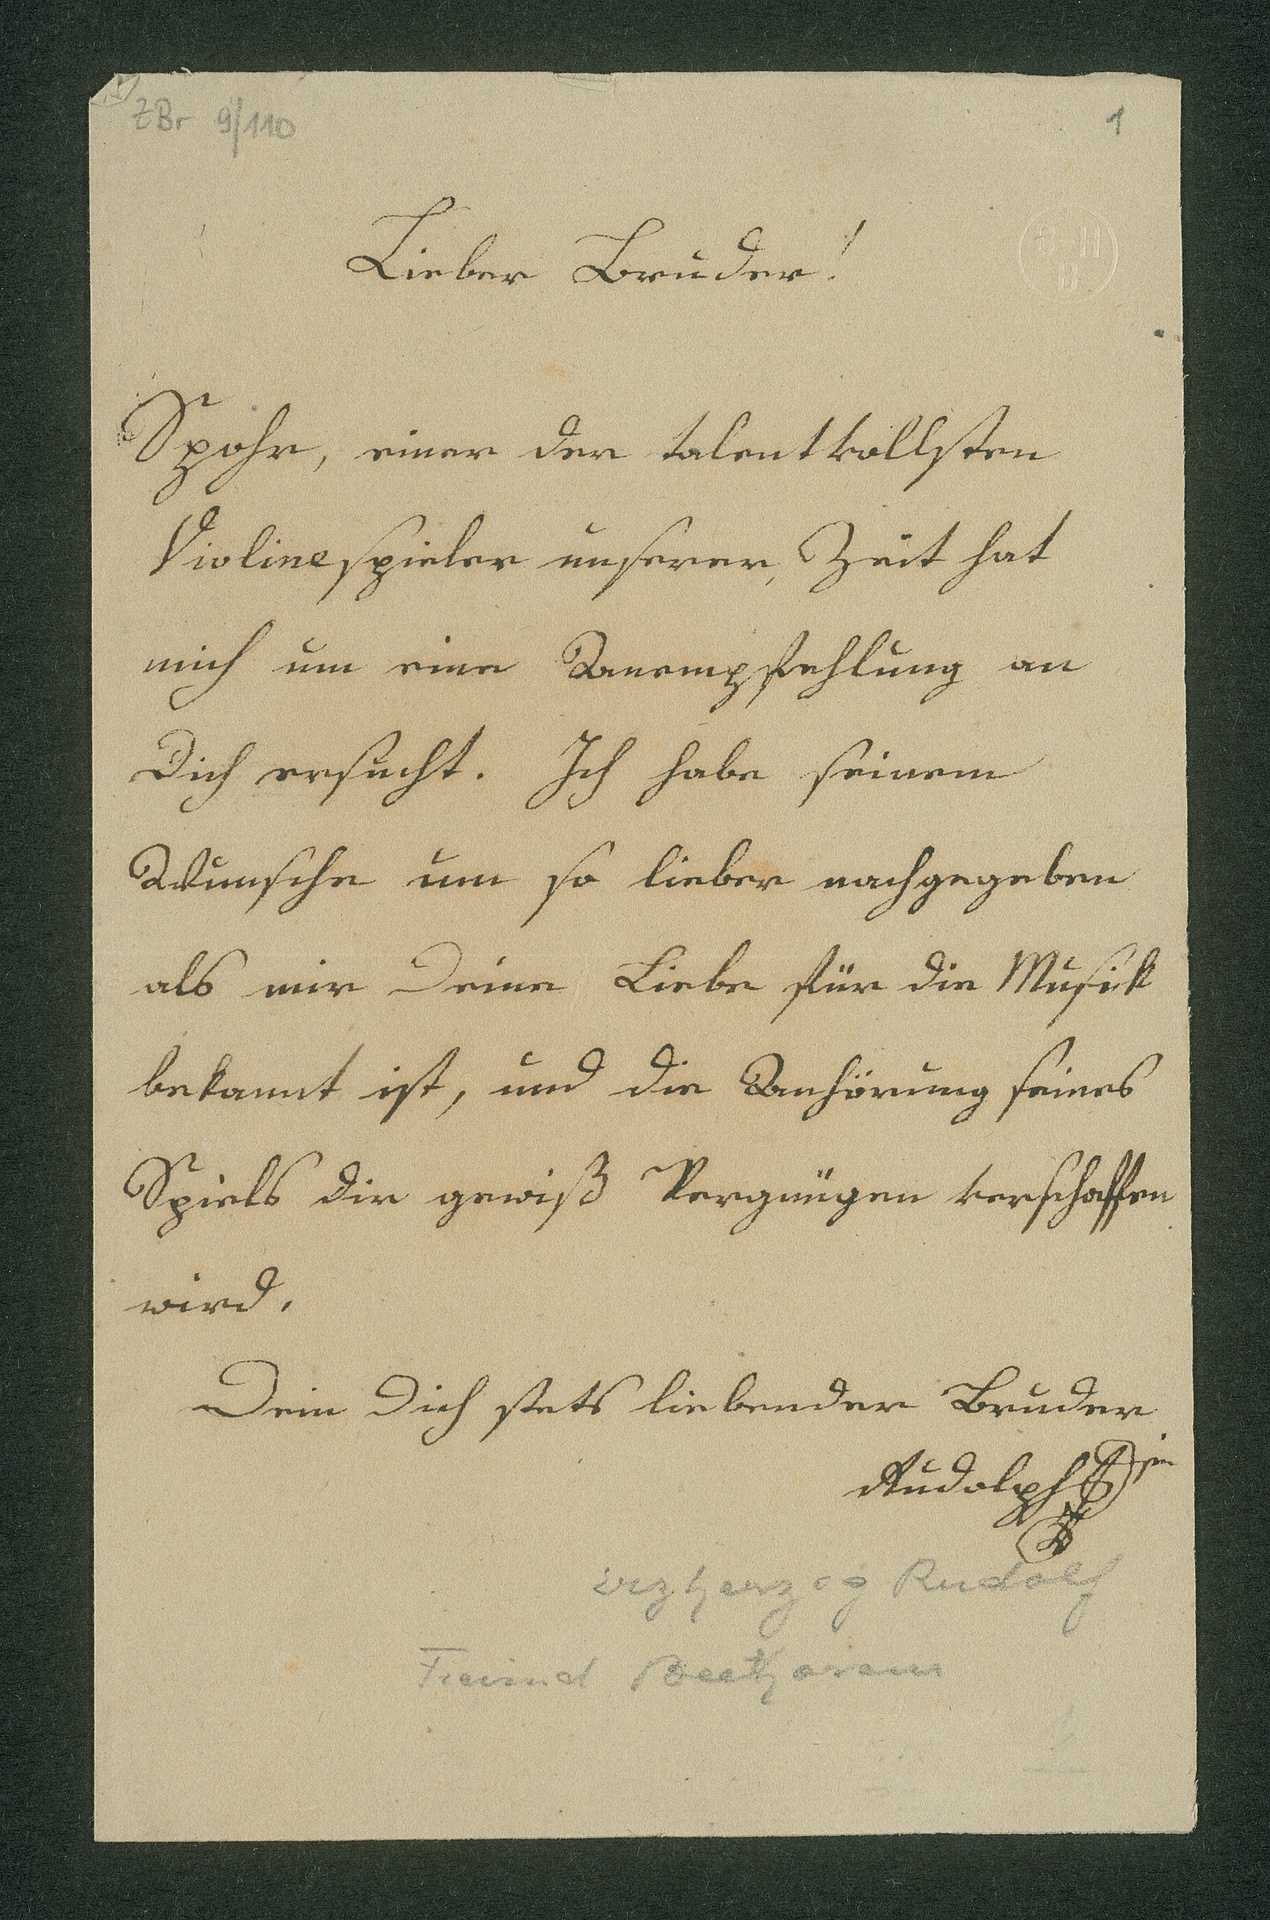 ZBr 9/110
1
Lieber Bruder!
Spohr, einer der talentvollsten
Violinespieler unserer Zeit hat
mich um eine Anempfehlung an
Dich ersucht. Ich habe seinem
Wunsche um so lieber nachgegeben
als mir Deine Liebe für die Musick
bekannt ist, und die Anhörung seines
Spiels dir gewiß Vergnügen verschaffen
wird.
Dein Dich stets liebender Bruder
Rudolph
Erzherzog Rudolf
Freund Beethovens